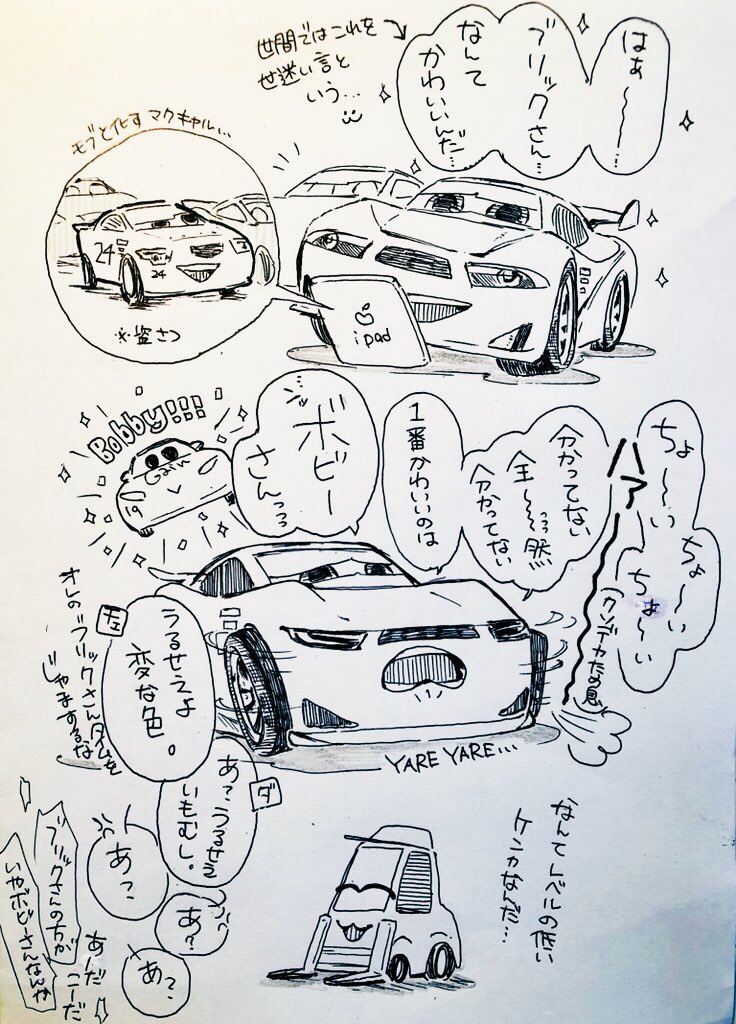 はぁ〜〜…
ブリックさん…
なんて
かわいいんだ…
世間ではこれを
世迷い言と
いう…
モブと化すマクキャル…
24
24
※盗さつ
ipad
ちょ〜い
ちょ〜い
ちょ〜い
ハァ
(クソデカため息)
分かってない
全〜〜っっ然
分かってない
1番かわいいのは
ボビー
さんっっ
Bobby!!!
Gain
19
YARE YARE...
チェ
うるせえよ
変な色。
オレのブリックさんタイムを
じゃまするな
ダ
あ?うるせえ
いもむし。
あ?
あ?
あ?
ブリックさんの方が
いやボビーさんなんや
あーだ
こーだ
なんてレベルの低い
ケンカなんだ…